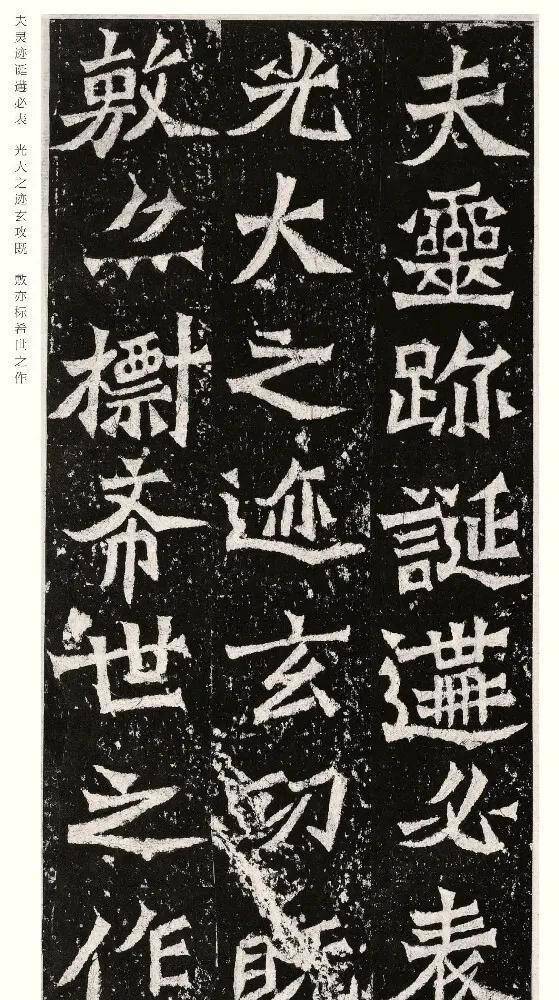 夫靈跡誕遘必表
光大之迹玄功既
敷亦標希世之作
夫灵迹诞遘必表 光大之迹玄攻既 敷亦标希世之作